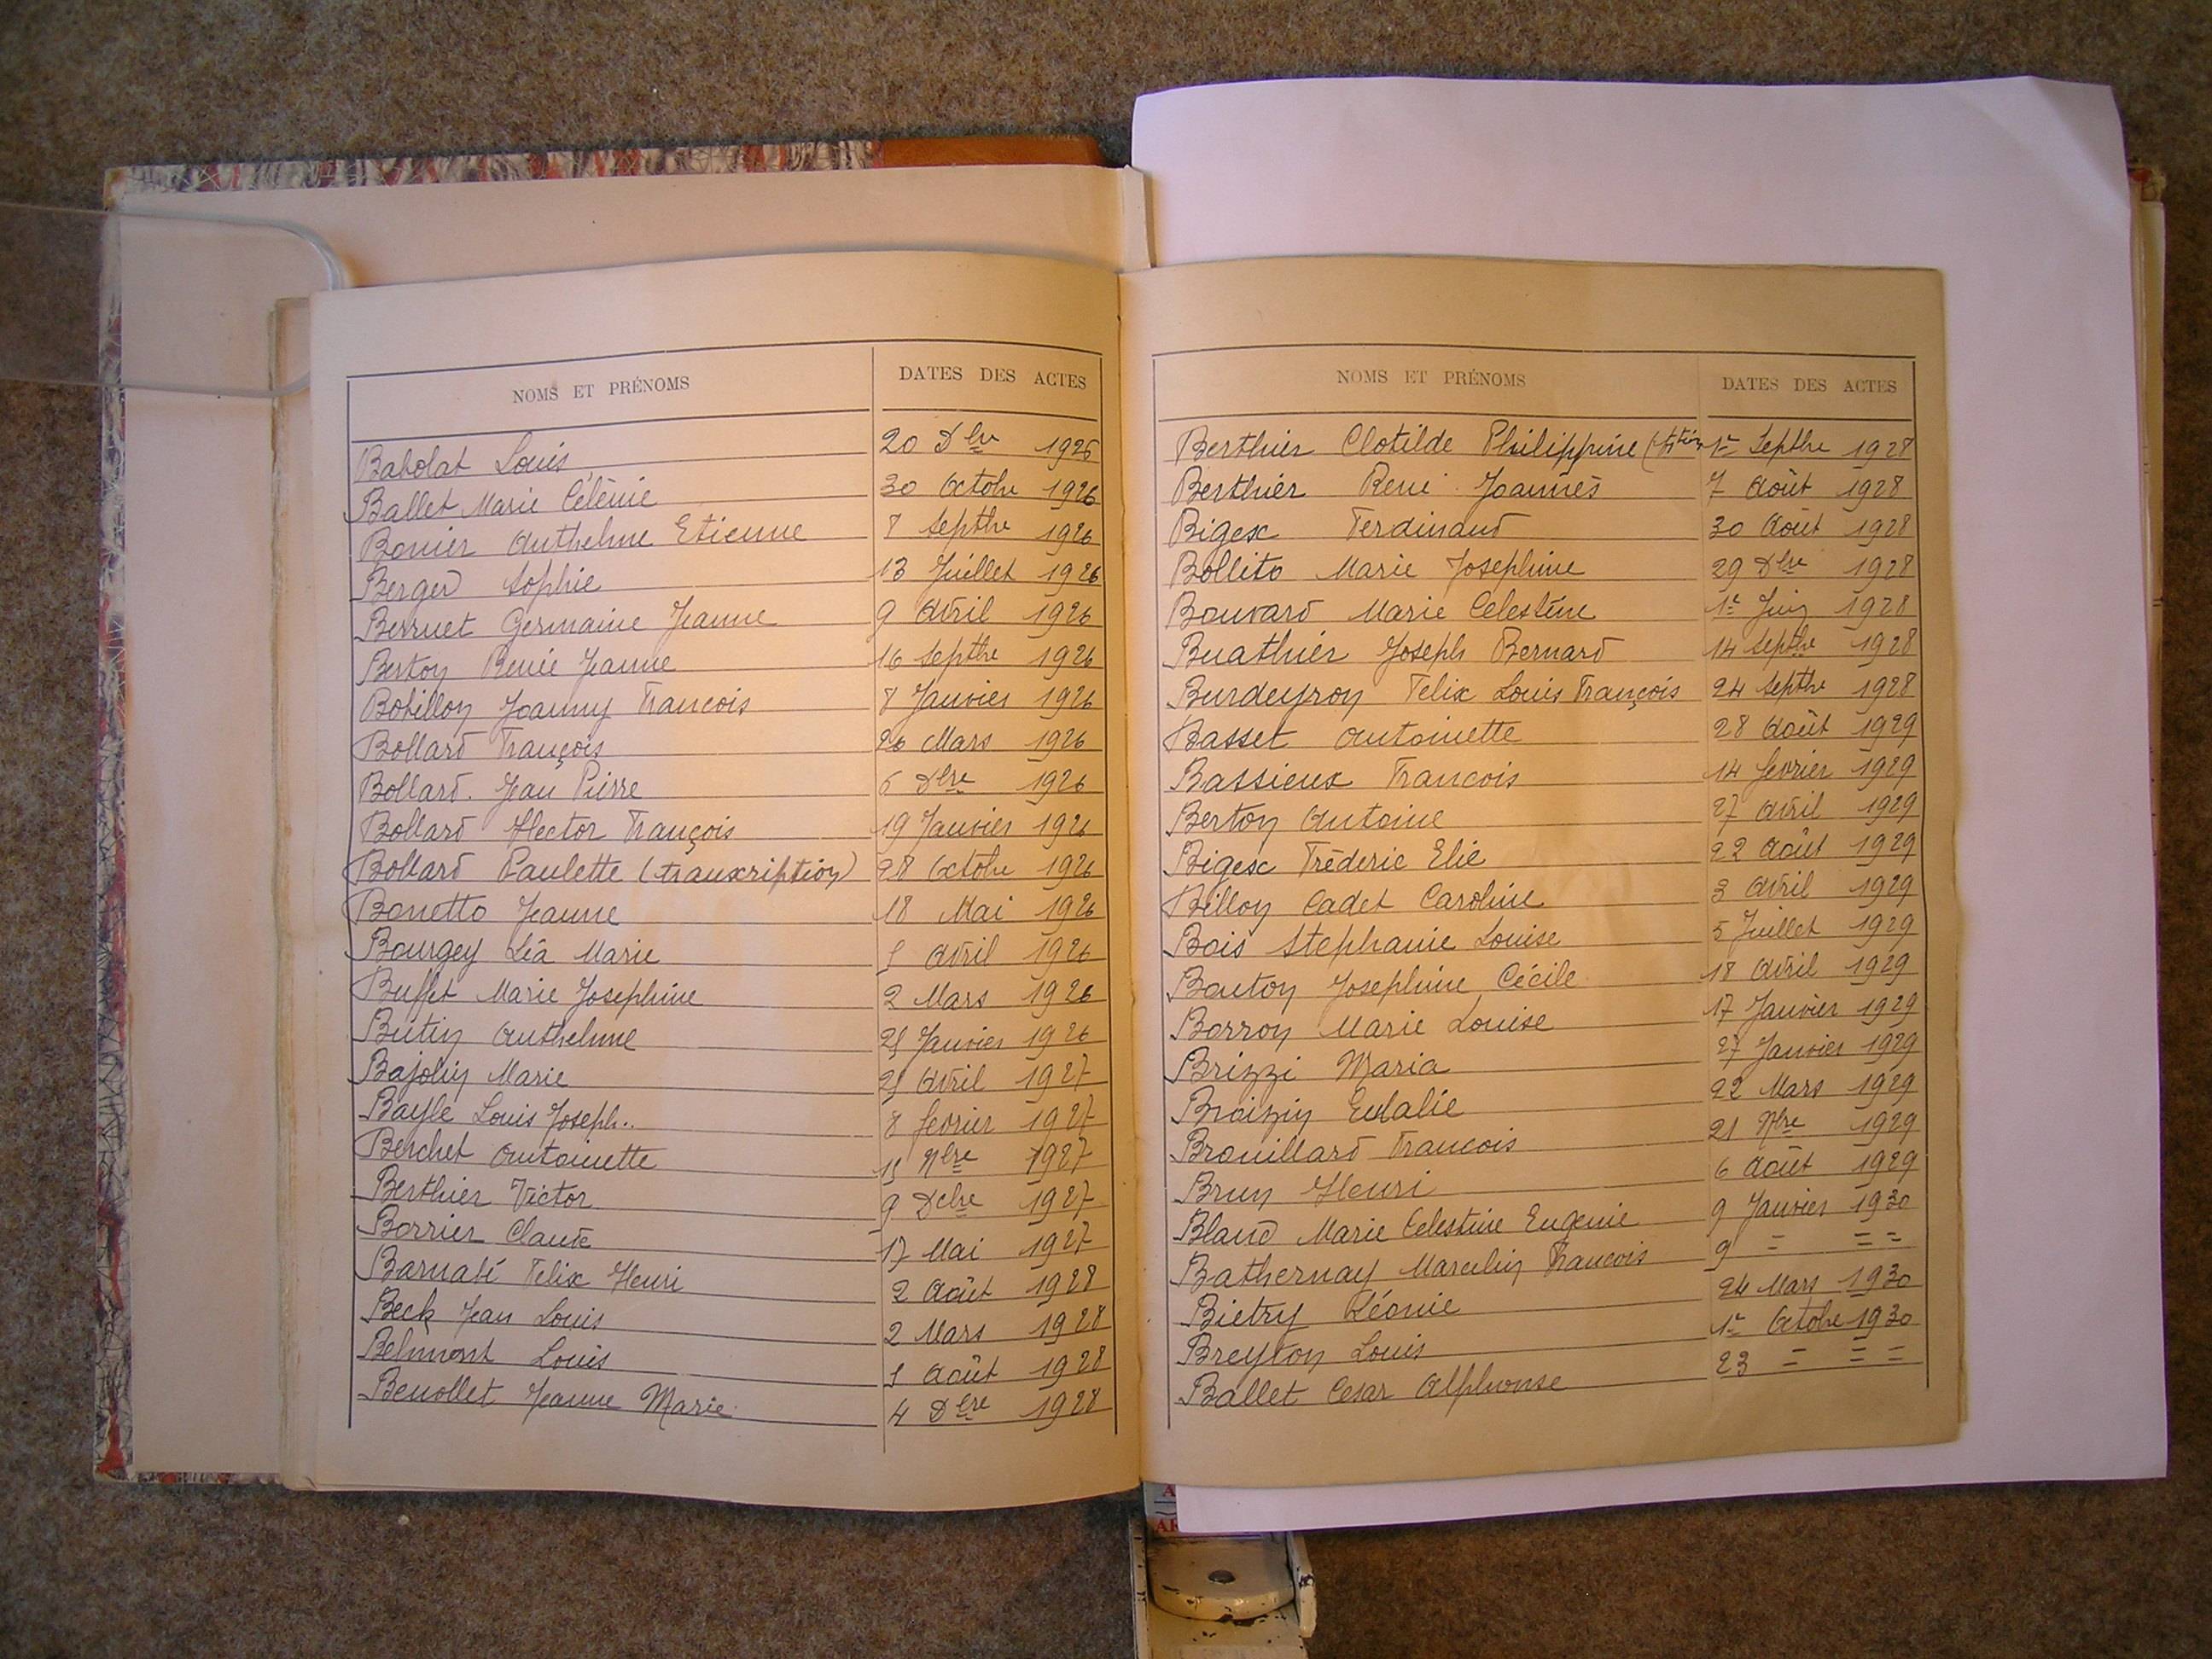 NOMS ET PRÉNOMS DATES DES ACTES
Babolat Louis 20 Dbre 1926
Ballet Marie Célénie 30 Octobre 1926
Bonier Anthelme Etienne 8 Septbre 1926
Berger Sophie 13 Juillet 1926
Berruet Germaine Jeanne 9 Avril 1926
Berton Renée Jeanne 16 Septbre 1926
Bobillon Joanny Francois 8 Janvier 1926
Bollard François 26 Mars 1926
Bollard Jean Pierre 6 Dbre 1926
Bollard Hector François 19 Janvier 1926
Bollard Paulette (transcription) 28 Octobre 1926
Bonetto Jeanne 18 Mai 1926
Bourgey Léa Marie Avril 1926
Buffet Marie Josephine 2 Mars 1926
Butin Anthelme Janvier 1926
Bajolin Marie Avril 1927
Bayle Louis Joseph.. 8 fevrier 1927
Berchet Antoinette Nbre 1927
Berthier Victor 9 Dcbre 1927
Borrier Claude 17 Mai 1927
Barnabé Felix Henri 2 Août 1928
Beck Jean Louis 2 Mars 1928
Belmont Louis Août 1928
Benollet Jeanne Marie 4 Dbre 1928
NOMS ET PRÉNOMS DATES DES ACTES
Berthier Clotilde Philippine 1er Septbre 1928
Berthier René Joannès 7 Août 1928
Bigex Ferdinand 30 Août 1928
Bollito Marie Josephine 29 Dbre 1928
Bouvard Marie Celestine 1er Juin 1928
Buathier Joseph Bernard 14 Septbre 1928
Burdeyron Felix Louis François 24 Septbre 1928
Basset Antoinette 28 Août 1929
Bassieux Francois 14 fevrier 1929
Berton Antoine 27 Avril 1929
Bigex Fréderic Elie 22 Août 1929
Billon Cadet Caroline 3 Avril 1929
Bois Stephanie Louise 5 Juillet 1929
Bouton Josephine Cécile 18 Avril 1929
Borron Marie Louise 17 Janvier 1929
Brizzi Maria 27 Janvier 1929
Broizin Eulalie 22 Mars 1929
Brouillard Francois 21 Nbre 1929
Brun Henri 6 Août 1929
Bland Marie Celestine Eugenie 9 Janvier 1930
Bathernay Marcelin Francois 9 = = =
Bietry Léonie 24 Mars 1930
Breyton Louis 1er Octobre 1930
Ballet Cesar Alphonse 23 = = =